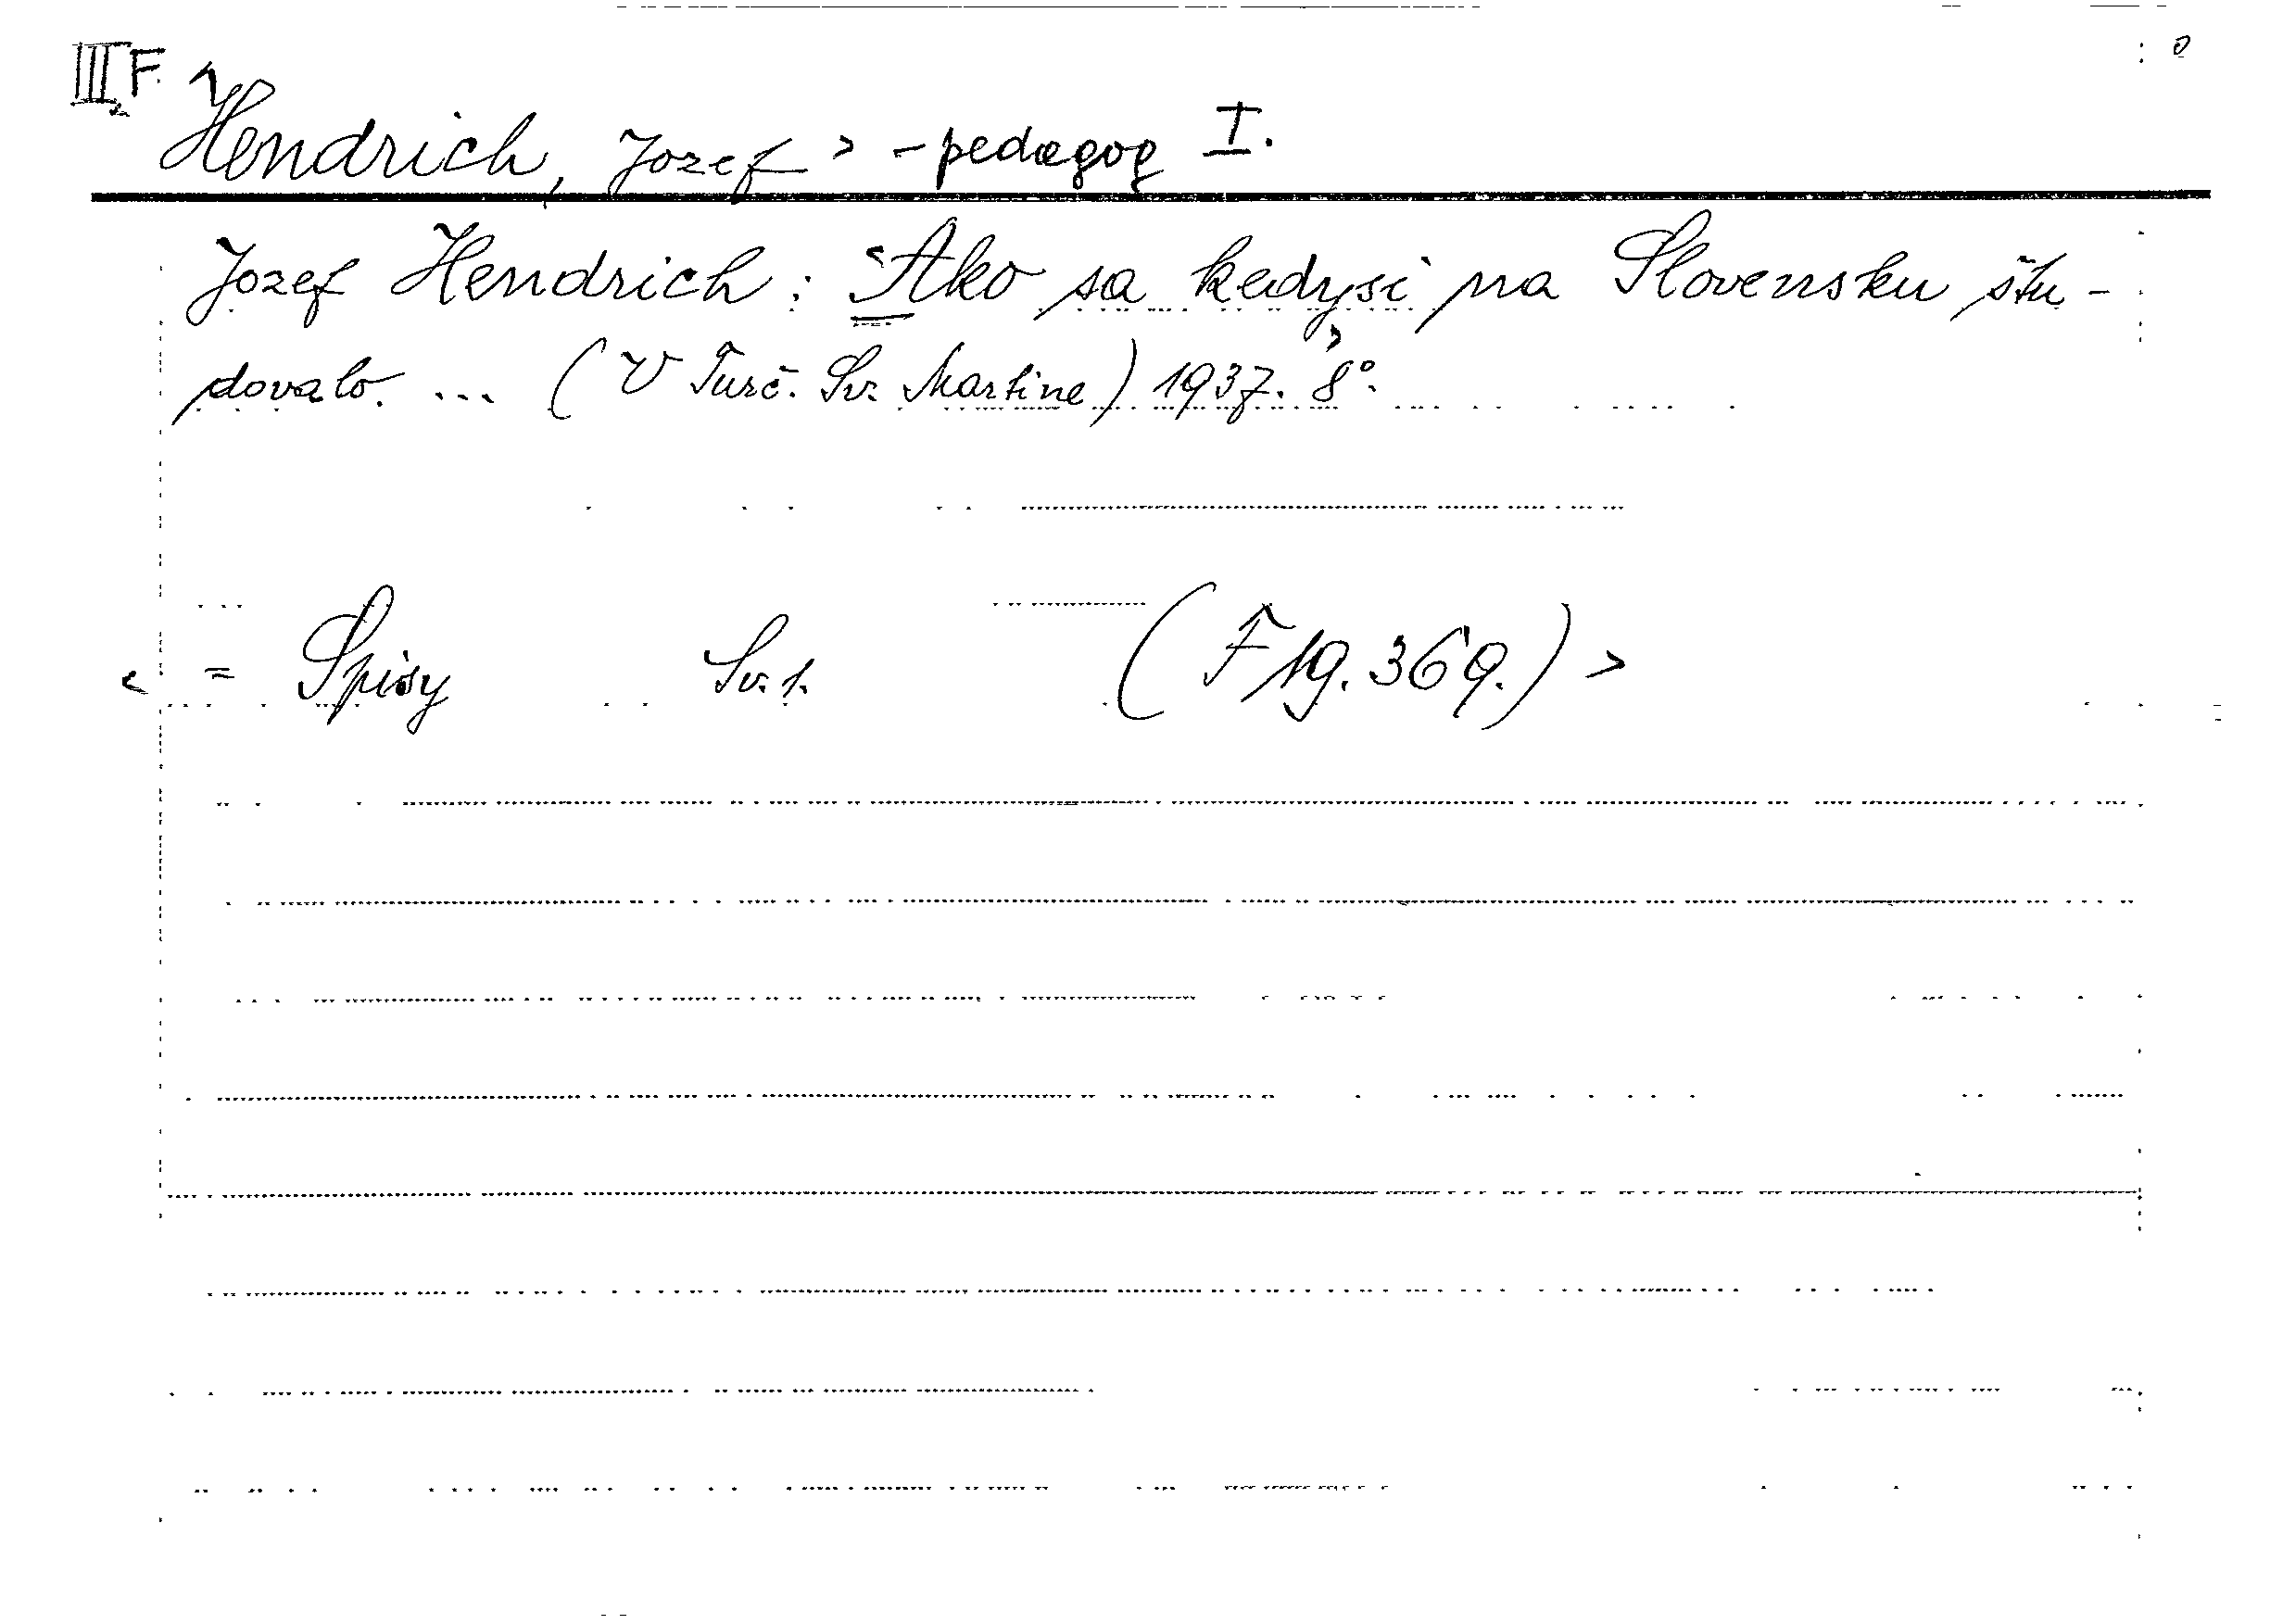 III F.
Hendrich, Jozef > - pedagog I.
Jozef Hendrich: Ako sa kedysi na Slovensku štu-
dovalo. ... (V Turč. Sv. Martine) 1937. 8°.
< = Spisy Sv. 1. (F 19.369.) >